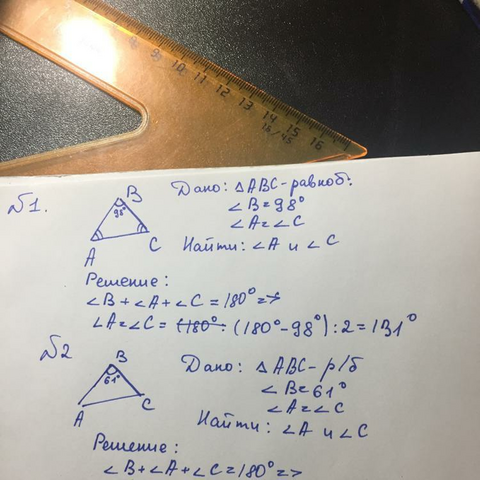 8 9 10 11 12 13 14 15 16
16/45
№1.
B
98°
A
C
Дано: △ABC-равноб:
∠B=98°
∠A=∠C
Найти: ∠A и ∠C
Решение:
∠B+∠A+∠C=180°=>
∠A=∠C= (180°: (180°-98°):2=131°
№2
B
61°
A
C
Дано: △ABC-р/б
∠B=61°
∠A=∠C
Найти: ∠A и ∠C
Решение:
∠B+∠A+∠C=180°=>